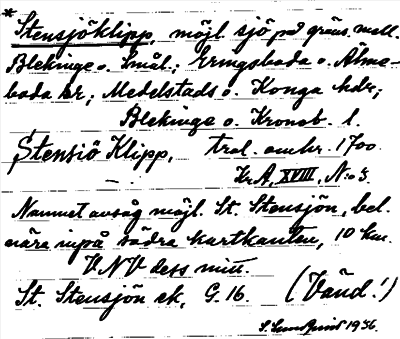 * Stensjöklipp, möjl sjö på gräns mell.
Blekinge o. Smål; Eringsboda o. Älme-
boda sr; Medelstads o. Konga hdr;
Blekinge o. Kronob. l.
Stensiö Klipp, tral. omkr. 1700.
Kr A, XVIII, N:o 3
Namnet avsåg möjl. St. Stensjön, bel.
nära inpå södra kartkanten, 10 km.
V.N.V dess mitt.
St. Stensjön ek, G. 16. (Vänd!)
S. Lundquist 1936.